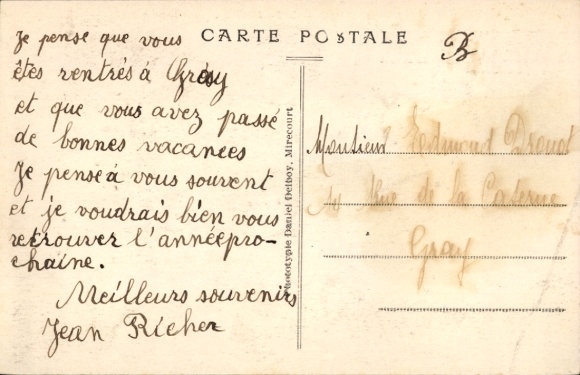 CARTE POSTALE
B
Je pense que vous
êtes rentrés à Gray
et que vous avez passé
de bonnes vacances
Je pense à vous souvent
et je voudrais bien vous
retrouver l'année pro-
chaine.
Meilleurs souvenirs
Jean Richer
Phototypie Daniel Delboy, Mirecourt
Monsieur Edmond Drouot
Rue de la Caserne
Gray